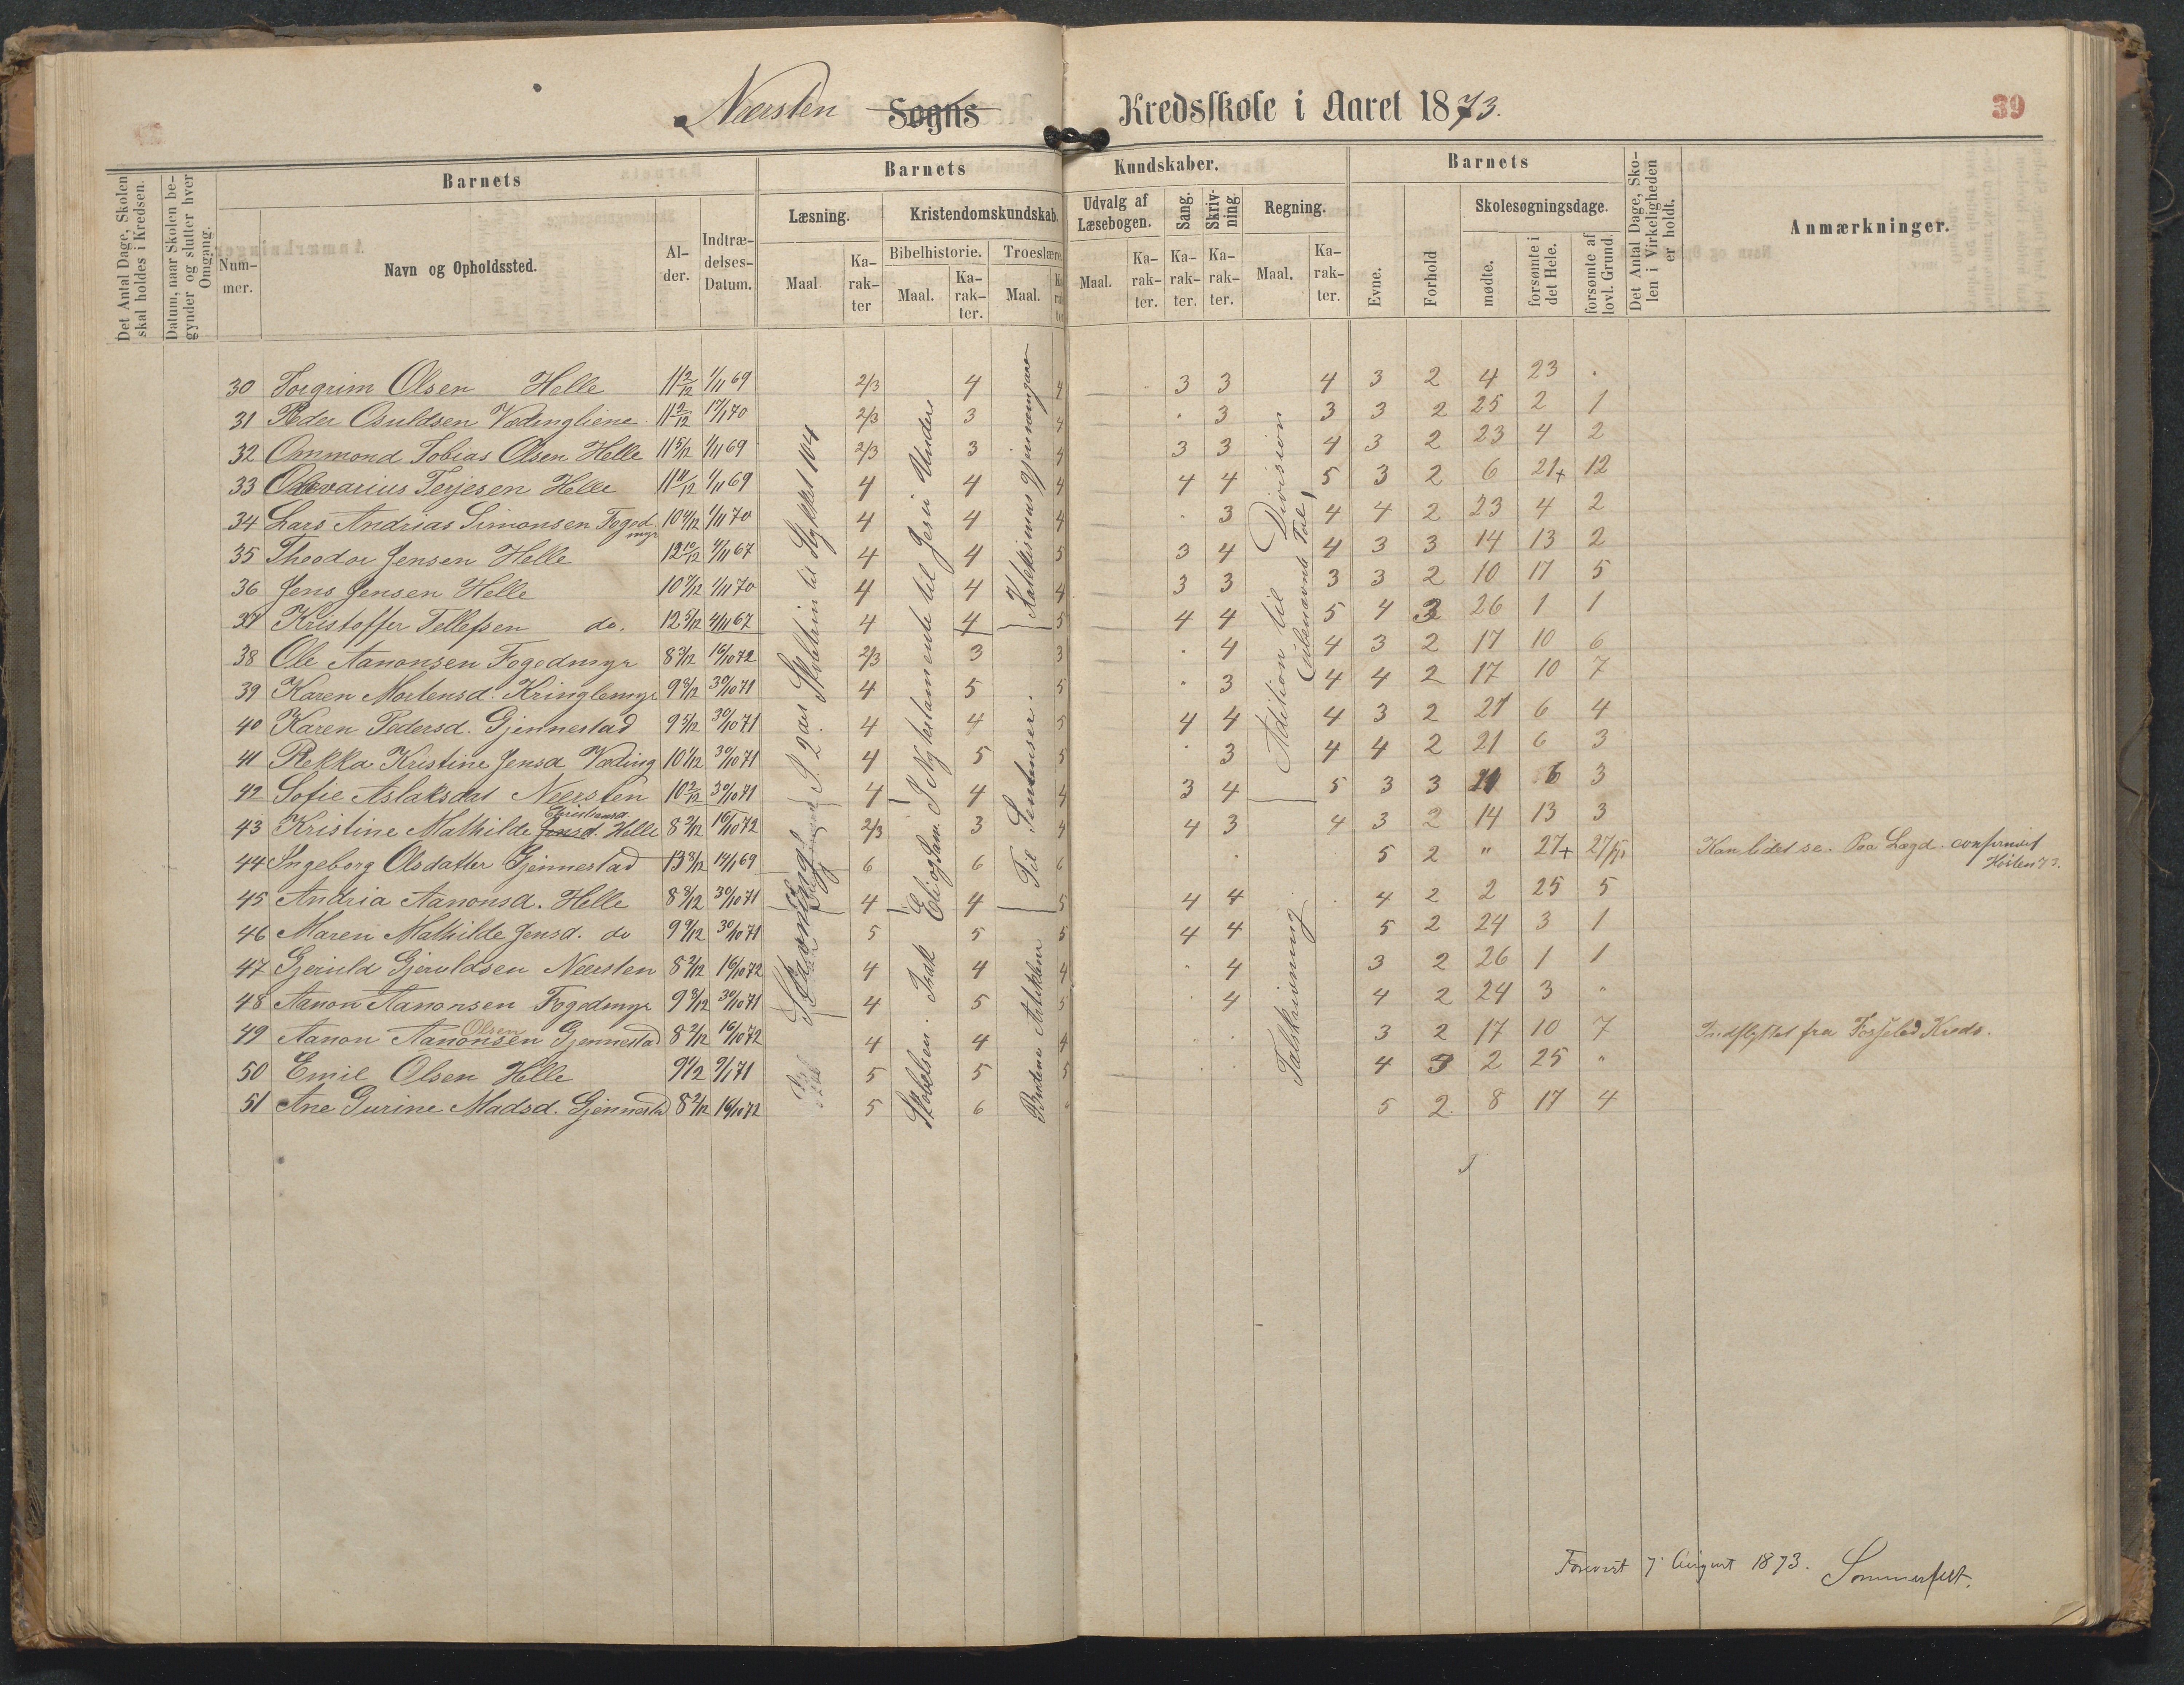 Næersten Sogns Kredsskole i Aaret 1873.
39
Det Antal Dage, Skolen skal holdes i Kredsen.
Datum, naar Skolen begynder og slutter hver Omgang.
Barnets
Nummer.
Navn og Opholdssted.
Alder.
Indtrædelses-Datum.
Barnets Kundskaber.
Læsning.
Maal.
Karakter
Kristendomskundskab.
Bibelhistorie.
Maal.
Karakter.
Troeslære.
Maal.
Udvalg af Læsebogen.
Maal.
Karakter.
Sang.
Karakter.
Skrivning
Karakter.
Regning.
Maal.
Karakter.
Barnets
Evne.
Forhold
Skolesøgningsdage.
mødte.
forsømte i det Hele.
forsømte af lovl. Grund.
Det Antal Dage, Skolen i Virkeligheden er holdt.
Anmærkninger.
30 Torgrim Olsen Helle 11 2/12 1/11 69 2/3 4 4 3 3 4 3 2 4 23 .
31 Peder Osuldsen Vædingliene 11 9/12 17/1 70 2/3 3 4 . 3 3 3 2 25 2 1
32 Ommond Tobias Olsen Helle 11 5/12 1/11 69 2/3 3 4 3 3 4 3 2 23 4 2
33 Olevarius Terjesen Helle 11 11/12 1/11 69 4 4 4 4 4 5 3 2 6 21+ 12
34 Lars Andrias Simonsen Fogedmyr 10 4/12 1/11 70 4 4 4 . 3 4 4 2 23 4 2
35 Theodor Jensen Helle 12 10/12 4/11 67 4 4 5 3 4 4 3 3 14 13 2
36 Jens Jensen Helle 10 7/12 1/11 70 4 4 4 3 3 3 3 2 10 17 5
37 Kristoffer Tellefsen do. 12 5/12 4/11 67 4 4 5 4 4 5 4 3 26 1 1
38 Ole Aanonsen Fogedmyr 8 3/12 16/10 72 2/3 3 3 . 4 4 3 2 17 10 6
39 Karen Mortensd. Kringlemyr 9 8/12 30/10 71 4 5 5 . 3 4 4 2 17 10 7
40 Karen Pedersd. Gjennestad 9 5/12 30/10 71 4 4 5 4 4 4 3 2 21 6 4
41 Rekka Kristine Jensd Væding 10 1/12 30/10 71 4 5 5 . 3 4 4 2 21 6 3
42 Sofie Aslaksdat Neersten 10 2/12 30/10 71 4 4 4 3 4 5 3 3 21 6 3
Christiansd.
43 Kristine Mathilde Jensd. Helle 8 2/12 16/10 72 2/3 3 4 4 3 4 3 2 14 13 3
44 Ingeborg Olsdatter Gjennestad 13 8/12 14/1 69 6 6 6 . 5 2 " 27+ 27 Kan lidet se. Paa Lægd. confirmert Hösten 73.
45 Andria Aanonsd. Helle 8 8/12 30/10 71 4 4 5 4 4 . 4 2 2 25 5
46 Maren Mathilde Jensd. do 9 9/12 30/10 71 5 5 5 4 4 5 2 24 3 1
47 Gjeruld Gjeruldsen Neersten 8 2/12 16/10 72 4 4 4 . 4 3 2 26 1 1
48 Aanon Aanonsen Fogedmyr 9 8/12 30/10 71 4 5 5 . 4 4 2 24 3 "
Olsen
49 Aanon Aanonsen Gjennestad 8 2/12 16/10 72 4 4 4 . . 3 2 17 10 7 Indflyttet fra Kreds.
50 Emil Olsen Helle 9 1/12 9/1 71 5 5 5 . . 4 3 2 25 "
51 Ane Gurine Madsd. Gjennestad 8 2/12 16/10 72 5 6 5 2 8 17 4
I 2den Skoletrin til Stykket 104
Stavning
I Nytestamente til Jesu Undere
Eli og Sam.
Skabelsen. Isak
Katekismus gjennemgaaet
Til Sentenser.
Budene Artiklene
Adition til Division
(ubenævnte Tal)
Talskrivning
Forevist 7. August 1873. Sommerfelt.